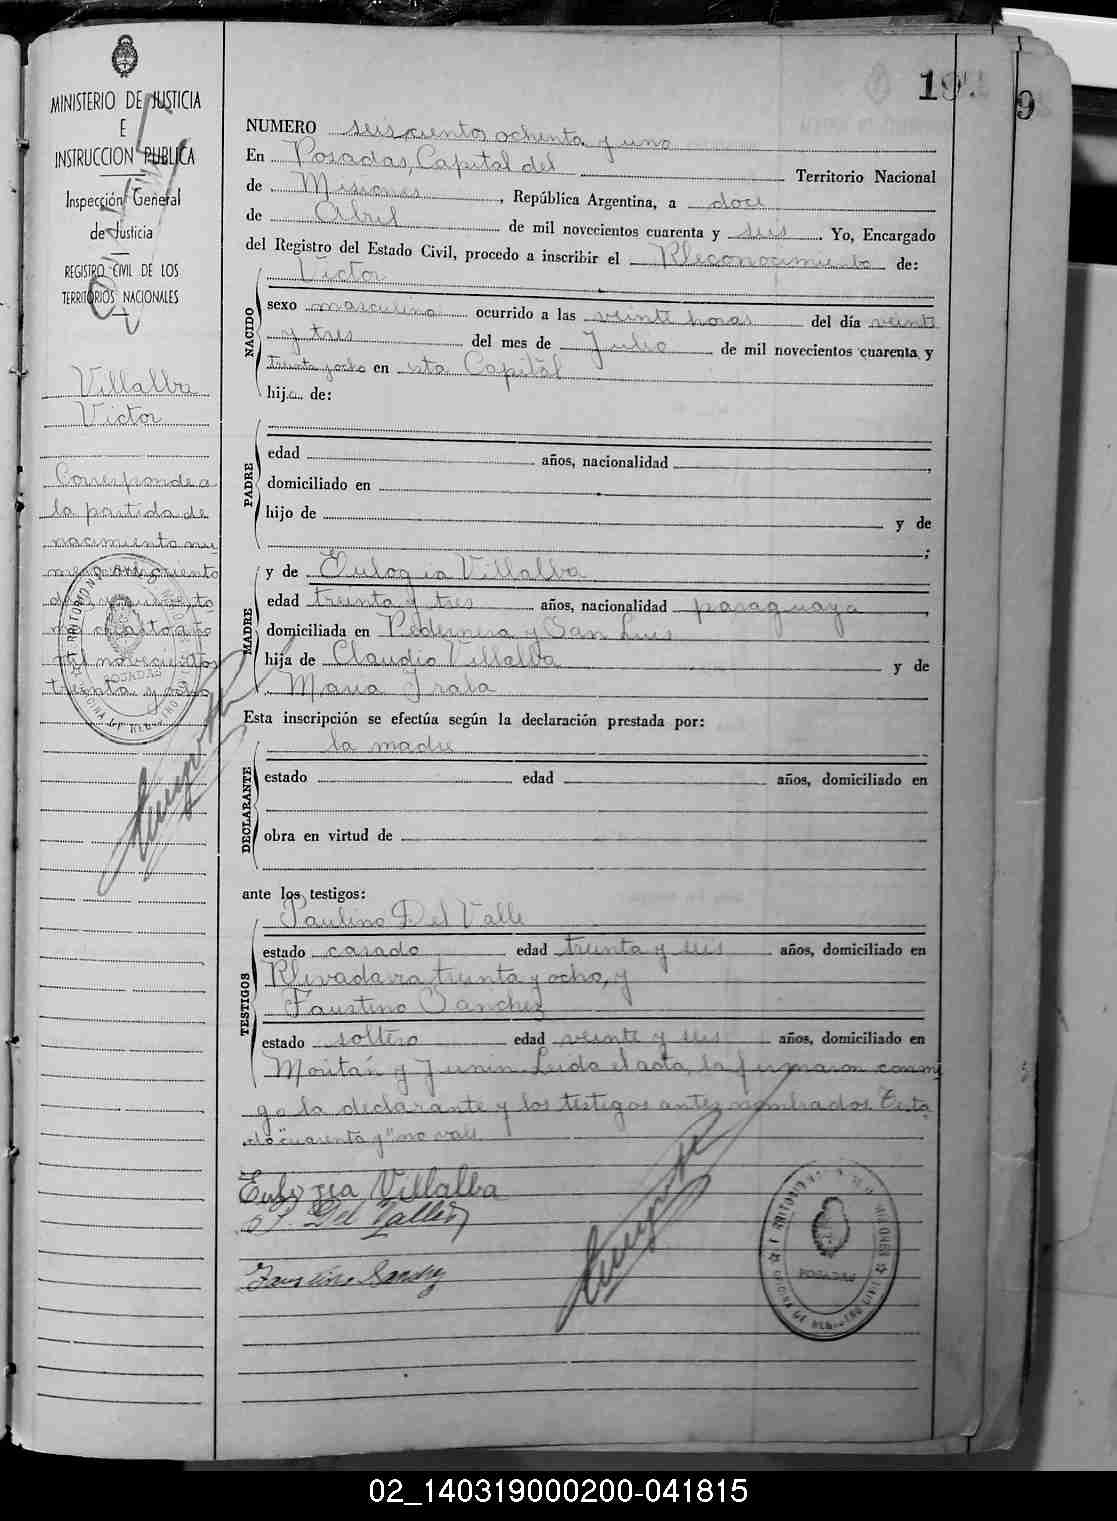 192
9
MINISTERIO DE JUSTICIA
E
INSTRUCCION PUBLICA
Inspección General
de Justicia
REGISTRO CIVIL DE LOS
TERRITORIOS NACIONALES
Villalba
Victor
Corresponde a
la partida de
nacimiento nú
mero
treinta y ocho
NUMERO seiscientos ochenta y uno
En Posadas, Capital del Territorio Nacional
de Misiones, República Argentina, a doce
de Abril de mil novecientos cuarenta y seis. Yo, Encargado
del Registro del Estado Civil, procedo a inscribir el Reconocimiento de:
NACIDO
Victor
sexo masculino ocurrido a las veinte horas del día veinte
y tres del mes de Julio de mil novecientos cuarenta y
treinta y ocho en esta Capital
hijo de:
PADRE
edad años, nacionalidad ,
domiciliado en
hijo de y de
;
MADRE
y de Eulogia Villalba
edad treinta y tres años, nacionalidad paraguaya,
domiciliada en Pedernera y San Luis
hija de Claudio Villalba y de
Maria Irala
Esta inscripción se efectúa según la declaración prestada por:
DECLARANTE
la madre
estado edad años, domiciliado en
obra en virtud de
ante los testigos:
TESTIGOS
Paulino Del Valle
estado casado edad treinta y seis años, domiciliado en
Rivadavia treinta y ocho, y
Faustino Sanchez
estado soltero edad veinte y seis años, domiciliado en
Moritán y Junin. Leida el acta, la firmaron conmi
go la declarante y los testigos antes nombrados. Testa
do "cuarenta y" no vale.
Eulogia Villalba
P. Del Valle
Faustino Sanchez
POSADAS
POSADAS
02_140319000200-041815